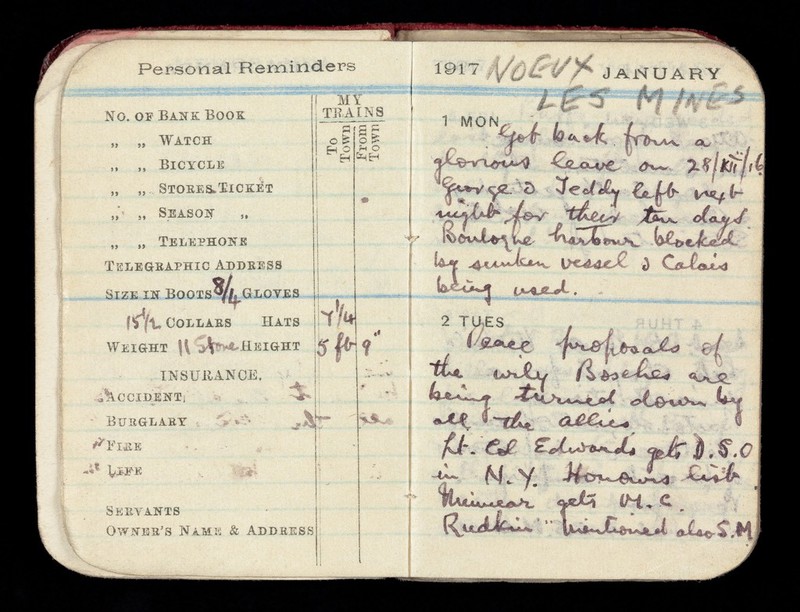 Personal Reminders
MY TRAINS
To Town
From Town
No. of Bank Book
„ „ Watch
„ „ Bicycle
„ „ Stores Ticket
„ „ Season „
„ „ Telephone
Telegraphic Address
Size in Boots 8/4 Gloves
15½ Collars Hats 7¼
Weight 11 Stone Height 5 ft 9"
INSURANCE.
Accident
Burglary
Fire
Life
Servants
Owner's Name & Address
1917 NOEUX JANUARY
LES MINES
1 MON
Got back from a
glorious leave on 28/XII/16
George & Teddy left next
night for their ten days.
Boulogne harbour blocked
by sunken vessel & Calais
being used.
2 TUES
Peace proposals of
the wily Bosches are
being turned down by
all the allies.
Lt. Col Edwards gets D.S.O
in N.Y. Honours list.
gets M.C.
Rudkin mentioned also S.M.